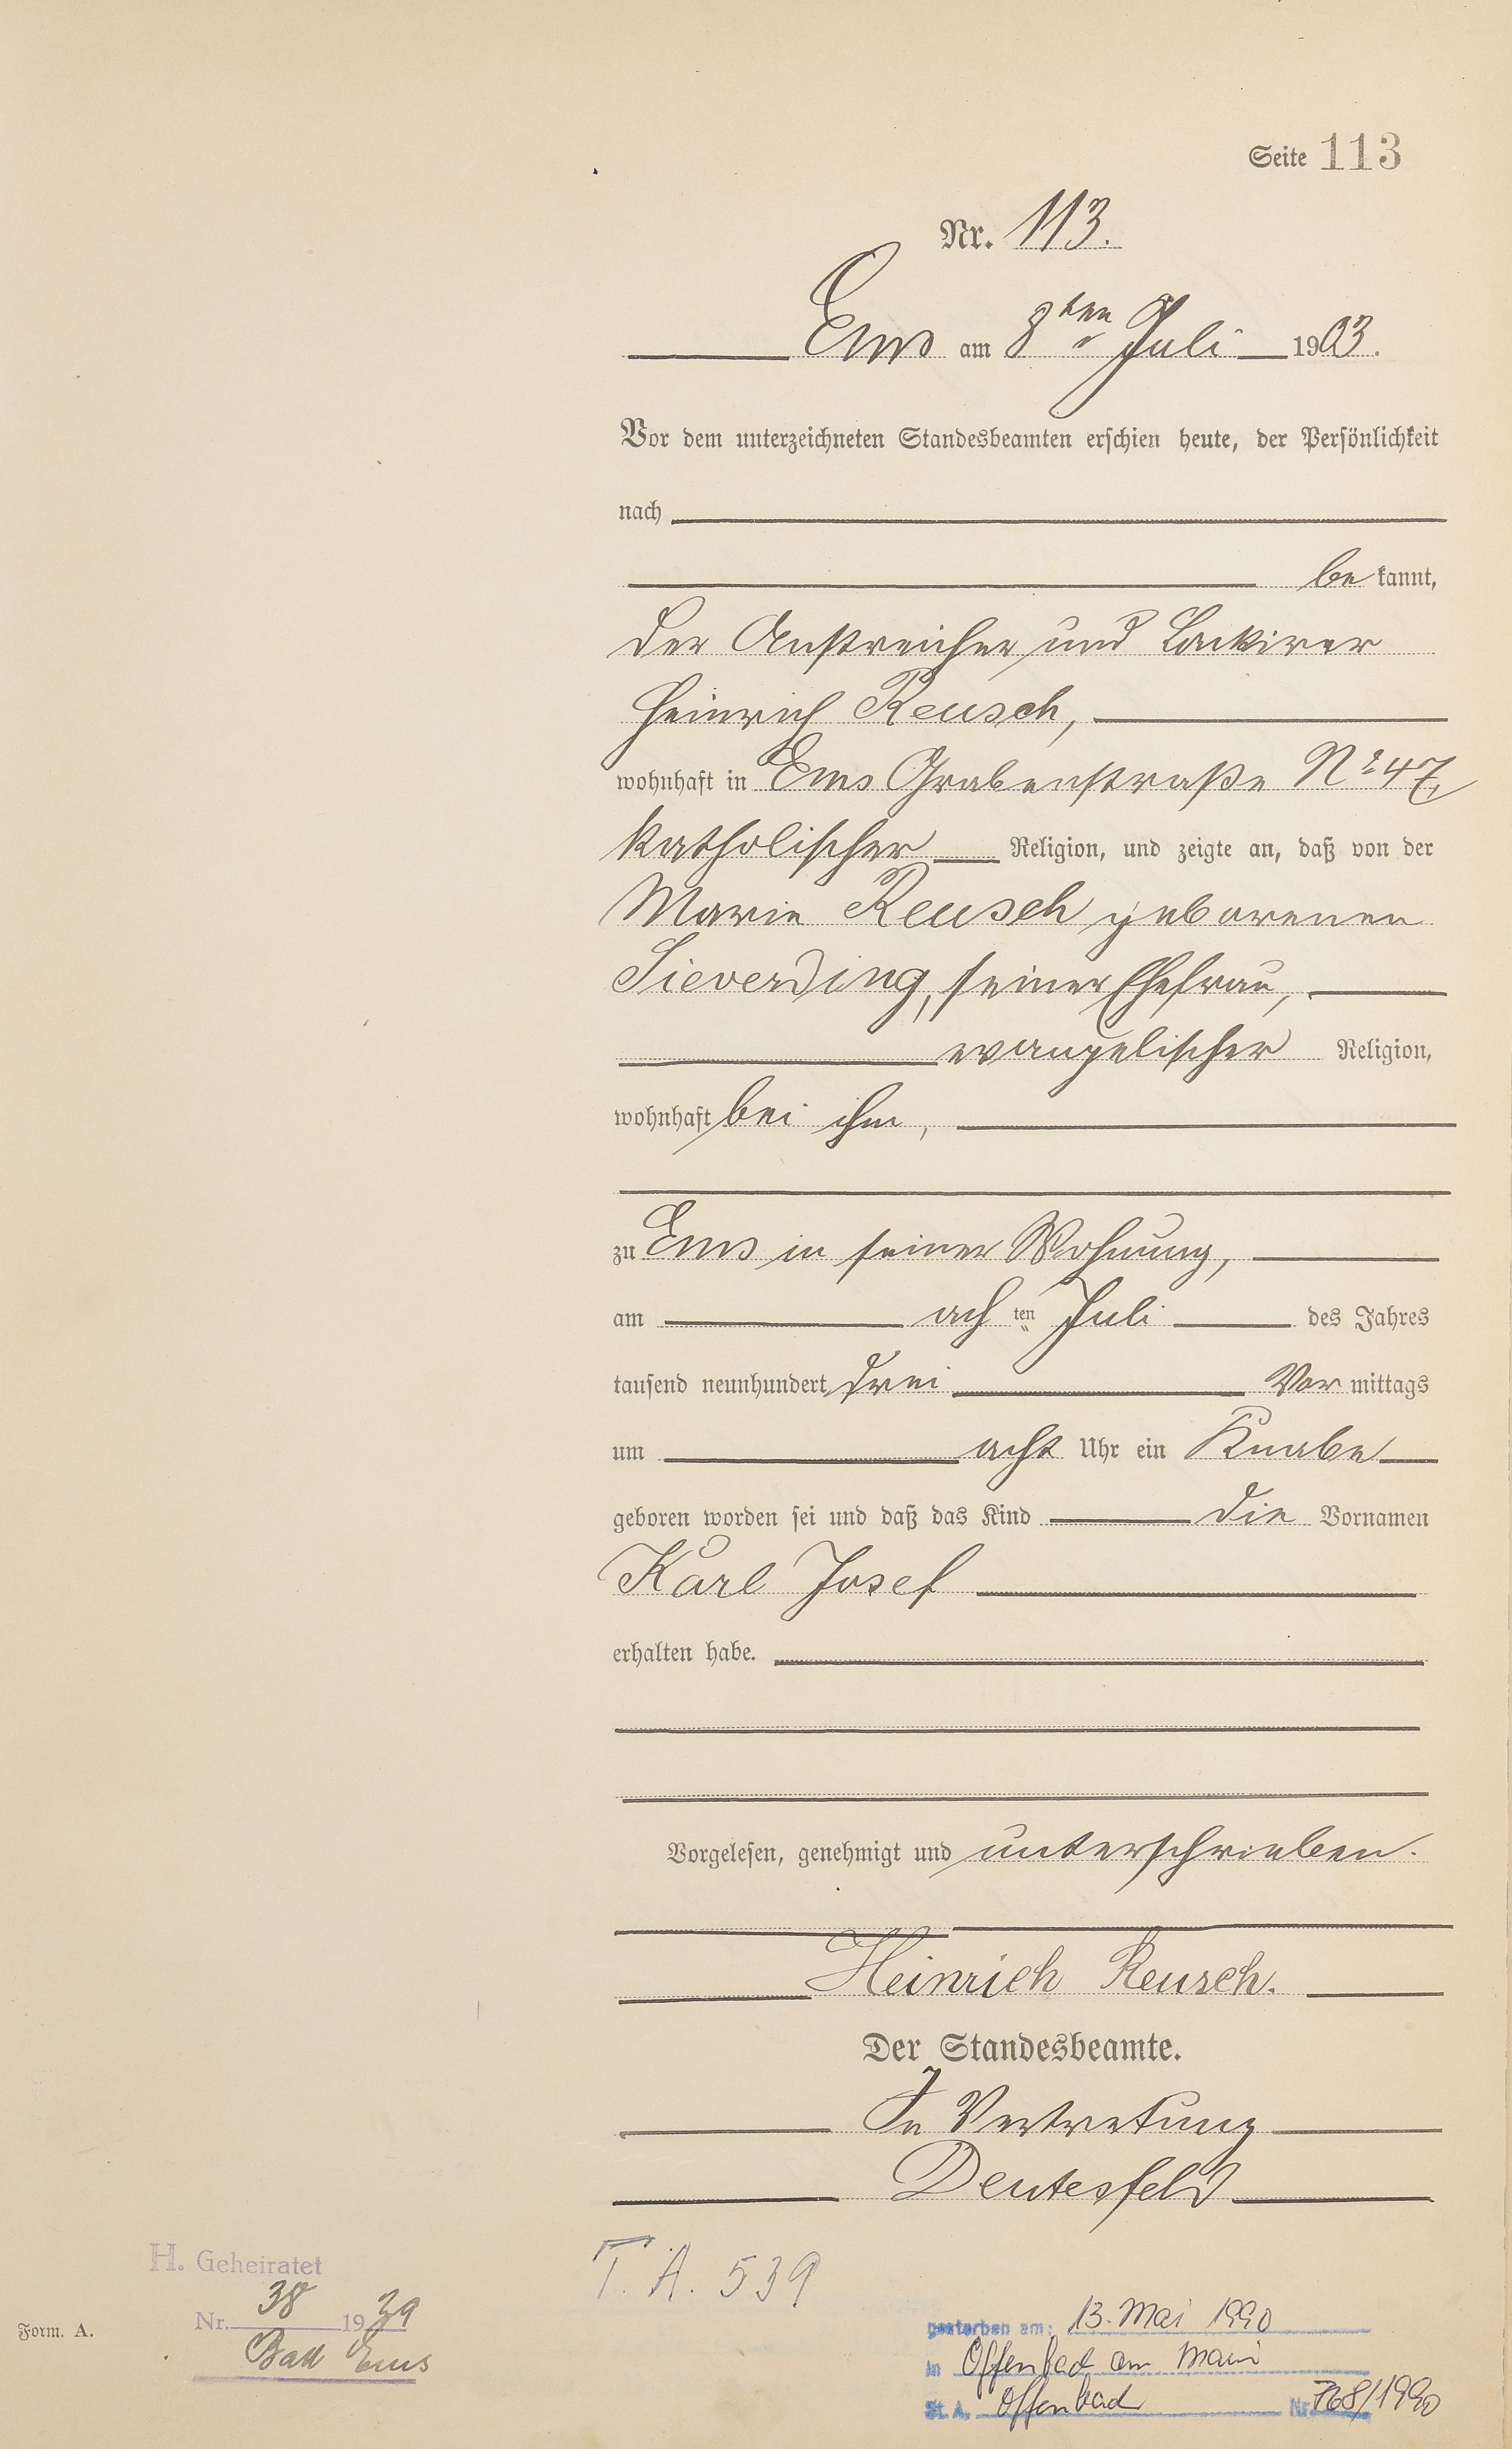 Seite 113
Nr. 113.
Ems am 8ten Juli 1903.
Vor dem unterzeichneten Standesbeamten erschien heute, der Persönlichkeit
nach
be kannt,
der Anstreicher und Lackirer
Heinrich Reusch,
wohnhaft in Ems Grabenstraße No 47,
katholischer Religion, und zeigte an, daß von der
Marie Reusch geborenen
Sieverding, seiner Ehefrau,
evangelischer Religion,
wohnhaft bei ihm,
zu Ems in seiner Wohnung,
am ach ten Juli des Jahres
tausend neunhundert drei Vor mittags
um acht Uhr ein Knabe
geboren worden sei und daß das Kind die Vornamen
Karl Josef
erhalten habe.
Vorgelesen, genehmigt und unterschrieben.
Heinrich Reusch.
Der Standesbeamte.
In Vertretung
Deutesfeld
T. A. 539
H. Geheiratet
Nr. 38 1939
Bad Ems
Form. A.
gestorben am: 13. Mai 1990
in Offenbach am Main
St. A. Offenbach Nr. 768/1990